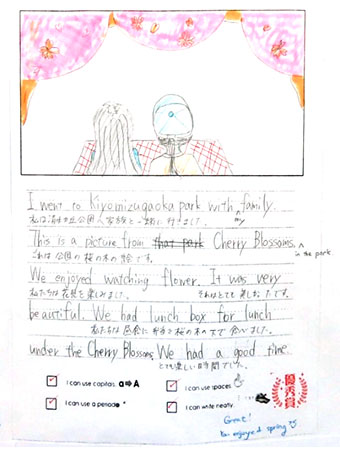 I went to Kiyomizugaoka park with my family.
This is a picture from that park Cherry Blossoms. in the park
これは公園の桜の木の絵です。
We enjoyed watching flower. It was very
私たちは花見を楽しみました。
beautiful. We had lunch box for lunch
under the Cherry Blossoms. We had a good time.
とても楽しい時間でした。
I can use capitals a⇒A
I can use spaces
I can use a period
I can write neatly
優秀賞
Great!
You enjoyed spring